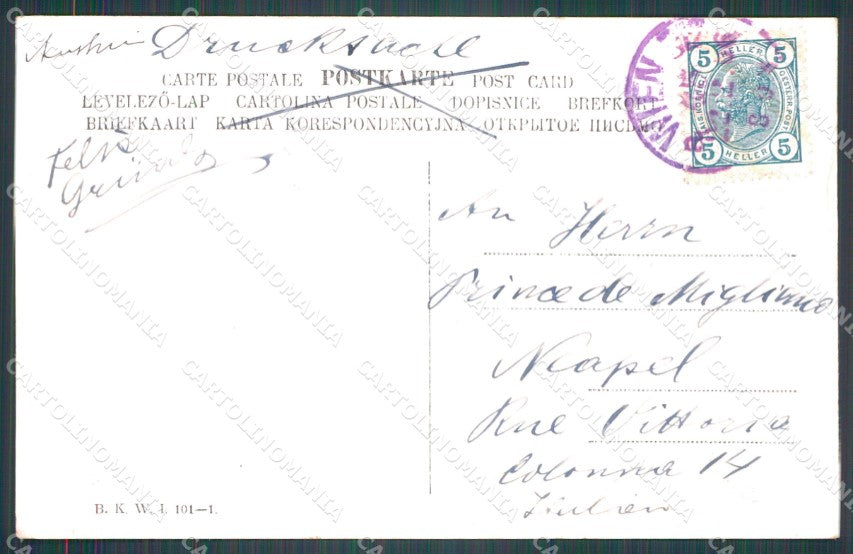 Austria Drucksache
CARTE POSTALE POSTKARTE POST CARD
LEVELEZŐ-LAP CARTOLINA POSTALE DOPISNICE BREFKORT
BRIEFKAART KARTA KORESPONDENCYJNA ОТКРЫТОЕ ПИСЬМО
WIEN
5 HELLER 5
5 HELLER 5
An Herrn
Prince de Migliano
Neapel
Rue Vittoria
Colonna 14
Italien
B. K. W. I. 101—1.
CARTOLINOMANIA